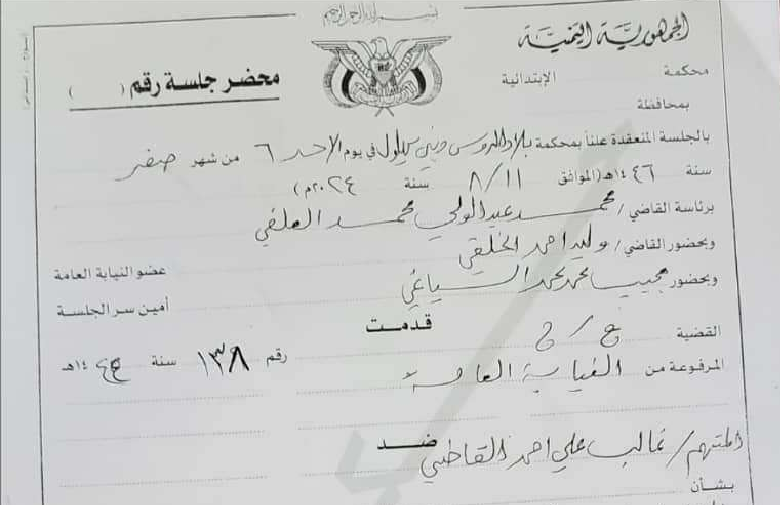 بسم الله الرحمن الرحيم
الجمهورية اليمنية
محكمة الإبتدائية
محضر جلسة رقم ( )
بمحافظة
بالجلسة المنعقدة علناً بمحكمة بلاد الروس وبني بهلول في يوم الاحد ٦ من شهر صفر
سنة ١٤٤٦هـ (الموافق ٨/١١ سنة ٢٠٢٤م)
برئاسة القاضي / محمد عبدالولي محمد العلفي
وبحضور القاضي / وليد احمد الخلقي عضو النيابة العامة
وبحضور مجيب محمد محمد السياغي أمين سر الجلسة
القضية ج/ج قدمت
المرفوعة من النيابة العامة رقم ١٣٨ سنة ١٤هـ
ضد
المتهم / غالب علي احمد القاطبي
بشأن